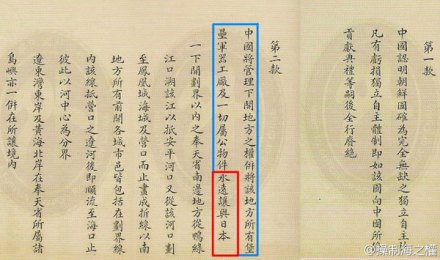 第一款
中國認明朝鮮國確為完全無缺之獨立自主
凡有虧損獨立自主體制即如該國向中國所修
貢獻典禮等嗣後全行廢絕
第二款
中國將管理下開地方之權併將該地方所有堡
壘軍器工廠及一切屬公物件永遠讓與日本
一下開劃界以內之奉天省南邊地方從鴨綠
江口溯該江以抵安平河口又從該河口劃
至鳳凰城海城及營口而止畫成折線以南
地方所有前開各城市邑皆包括在劃界線
內該線抵營口之遼河後即順流至海口止
彼此以河中心為分界
遼東灣東岸及黃海北岸在奉天省所屬諸
島嶼亦一併在所讓境內
@操制海之權